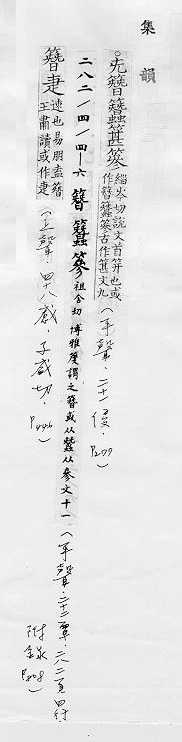 集韻
。兂簪簮葚篸緇岑切說文首笄也或作簪簮篸古作葚文九(平聲.二十一侵.P277)
二八二/四/四—六 簪 簮 篸 祖含切 博雅 謂之簪或从 从參文十一(平聲.二十二覃.二八二頁四行.附錄P808)
簪疌 速也易朋盍簪王肅讀或作疌(上聲.四十八感.子感切.P446)